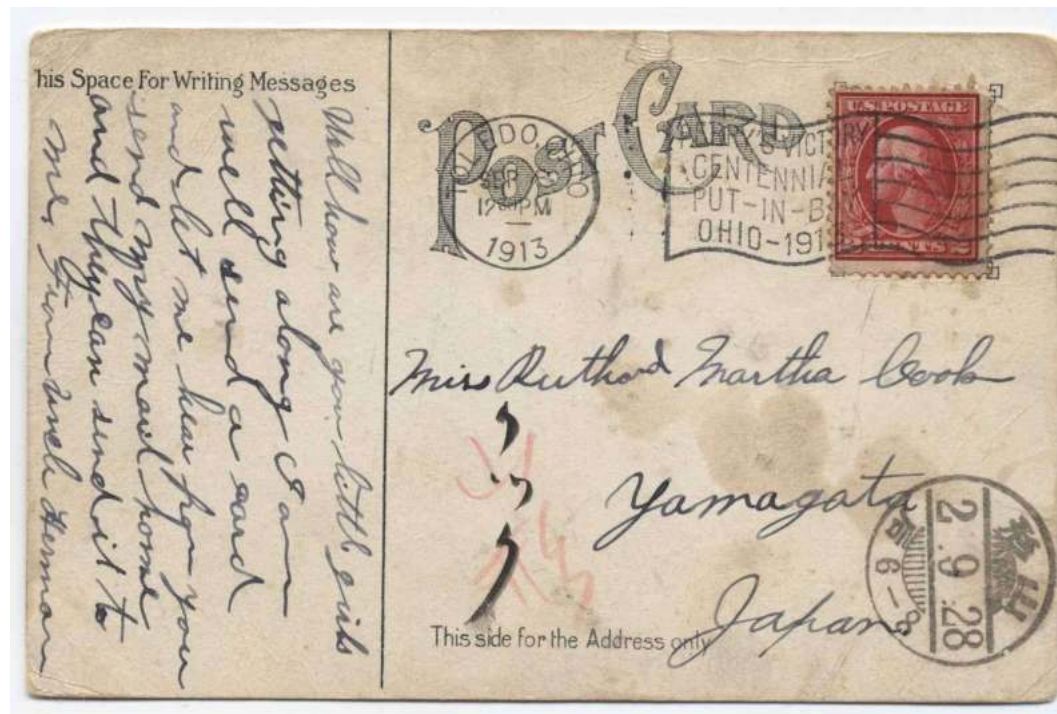 his Space For Writing Messages
Well how are you little girls
getting along I am
well send a card
and let me hear from you
send my mail home
and they can send it to
me, From Uncle Herman
POST CARD
TOLEDO, OHIO
SEP
12 PM
1913
PERRY'S VICTORY
CENTENNIA
PUT-IN-B
OHIO-191
U.S. POSTAGE
CENTS
Miss Ruth and Martha Cook
クック
Yamagata
Japan.
山形
2.9.28
6-8
This side for the Address only